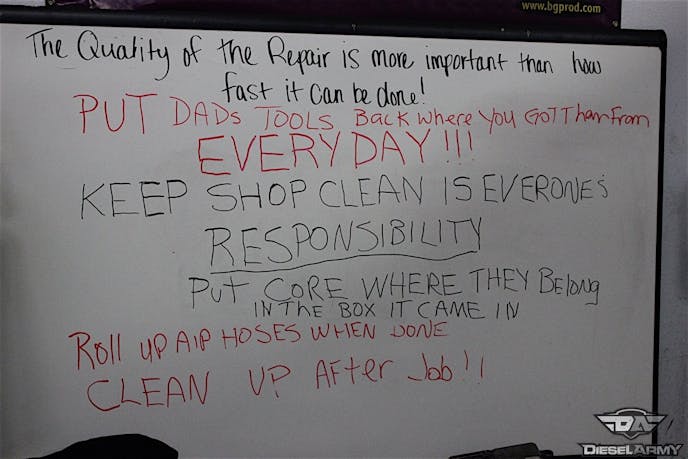 www.bgprod.com
The Quality of the Repair is more important than how
fast it can be done!
PUT DADs TOOLS Back where You GOT Them From
EVERYDAY!!!
KEEP SHOP CLEAN IS EVERONE'S
RESPONSIBILITY
PUT CORE WHERE THEY Belong
IN THE BOX IT CAME IN
Roll UP AIR HOSES WHEN DONE
CLEAN UP After Job!!
DA
DIESELARMY